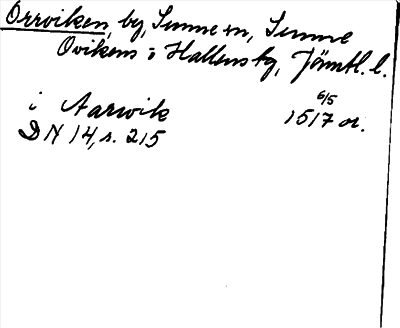 Orrviken, by, Sunne sn, Sunne
Ovikens o Hallens tg, Jämtl. l.
i Aarwik 6/5 1517 or.
DN 14, s. 215